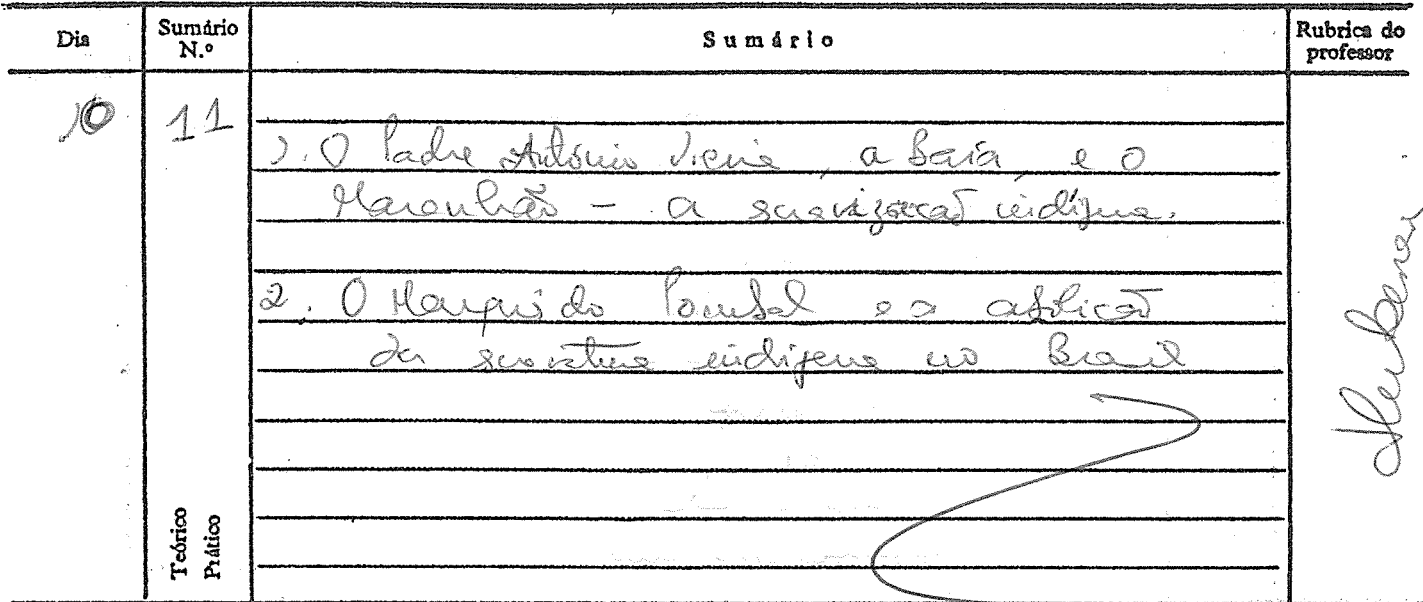 Dia
Sumário N.º
Sumário
Rubrica do professor
10
11
1. O Padre António Vieira, a Baía, e o
Maranhão – a escravização indígena.
2. O Marquês do Pombal e a abolição
da escravatura indígena no Brasil
Teórico
Prático